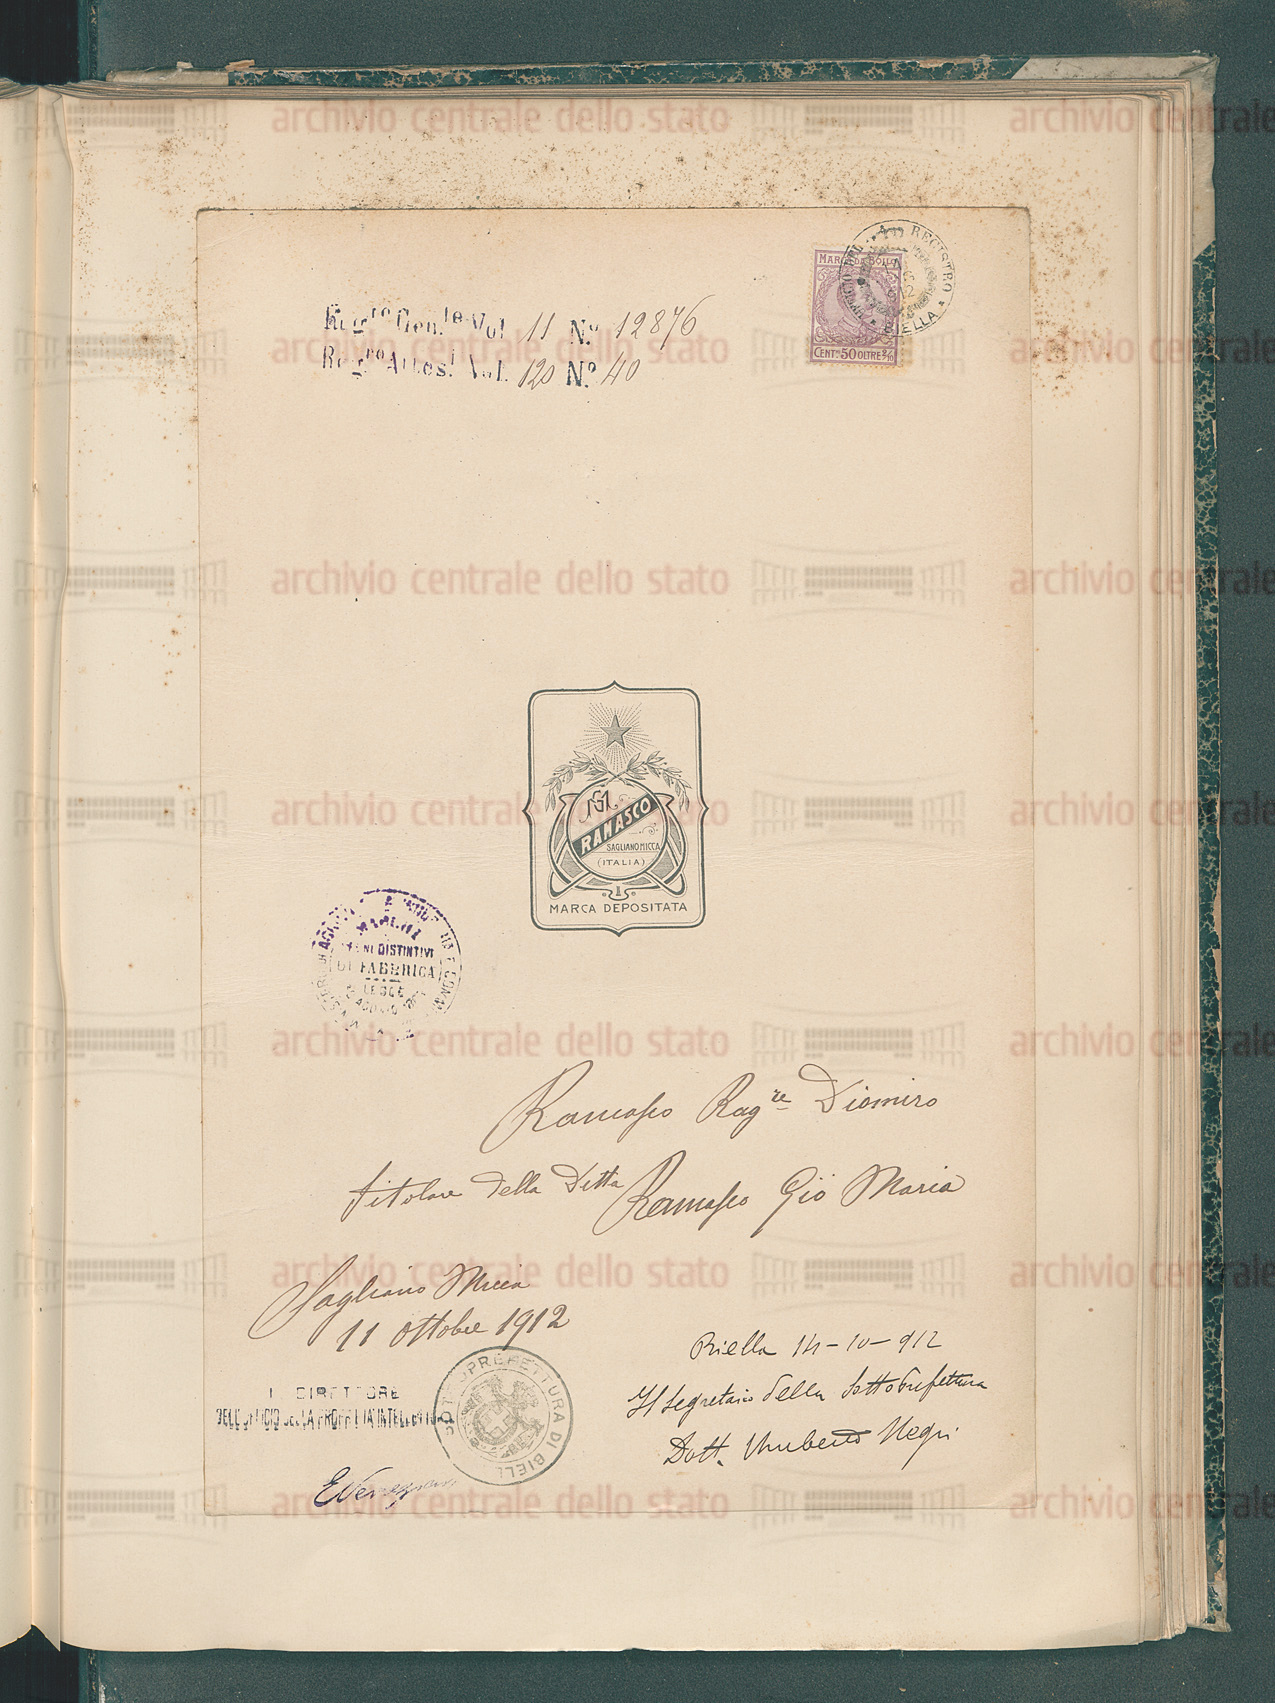 MARCA DA BOLLO
CENT. 50 OLTRE 2/10
UFFICIO DEL REGISTRO
BIELLA
Reg.ro Gen.le Vol 11 N.o 12876
Reg.ro Attest Vol. 120 N.o 40
GM
RAMASCO
SAGLIANO MICCA
(ITALIA)
MARCA DEPOSITATA
SEGNI DISTINTIVI
DI FABBRICA
LEGGE
Ramasco Rag.re Diomiro
titolare della Ditta Ramasco Gio Maria
Sagliano Micca
11 Ottobre 1912
Biella 14-10-912
Il Segretario della Sottoprefettura
Dott. Umberto Negri
SOTTOPREFETTURA DI BIELLA
IL DIRETTORE
DELL'UFFICIO DELLA PROPRIETA' INTELLETTUALE
archivio centrale dello stato